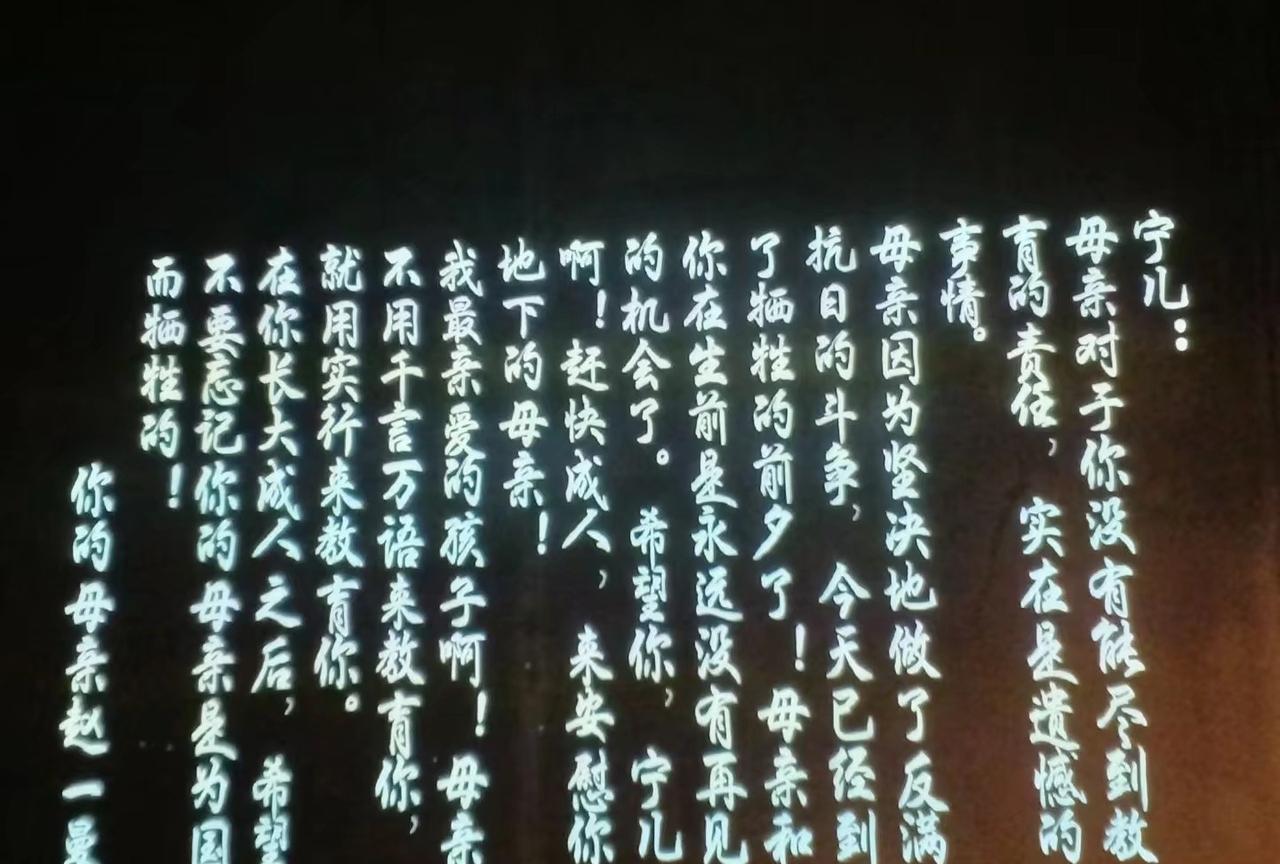 宁儿：
母亲对于你没有能尽到教
育的责任，实在是遗憾的
事情。
母亲因为坚决地做了反满
抗日的斗争，今天已经到
了牺牲的前夕了！母亲和
你在生前是永远没有再见
的机会了。希望你，宁儿
啊！赶快成人，来安慰你
地下的母亲！
我最亲爱的孩子啊！母亲
不用千言万语来教育你，
就用实行来教育你。
在你长大成人之后，希望
不要忘记你的母亲是为国
而牺牲的！
你的母亲赵一曼